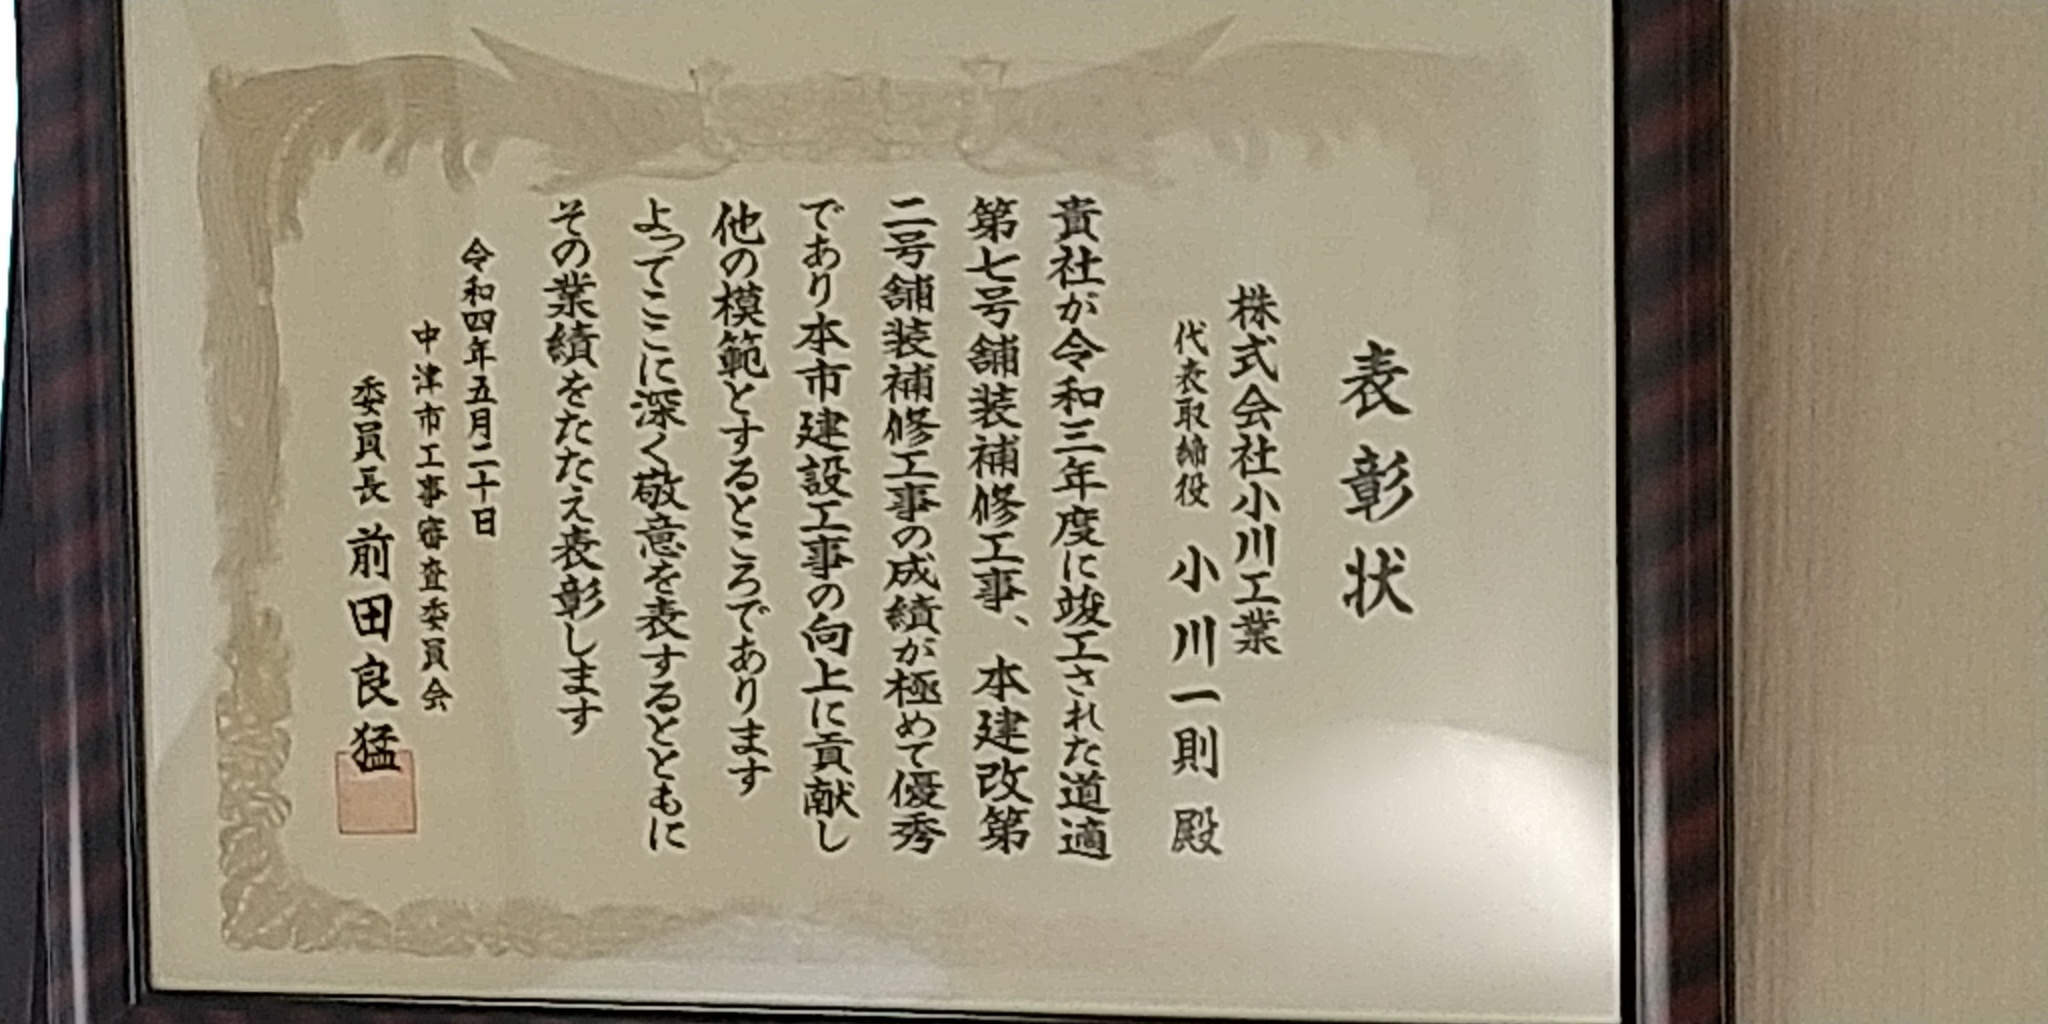 表彰状
株式会社小川工業
代表取締役 小川一則 殿
貴社が令和三年度に竣工された道適
第七号舗装補修工事、本建改第
二号舗装補修工事の成績が極めて優秀
であり本市建設工事の向上に貢献し
他の模範とするところであります
よってここに深く敬意を表するとともに
その業績をたたえ表彰します
令和四年五月二十日
中津市工事審査委員会
委員長 前田良猛